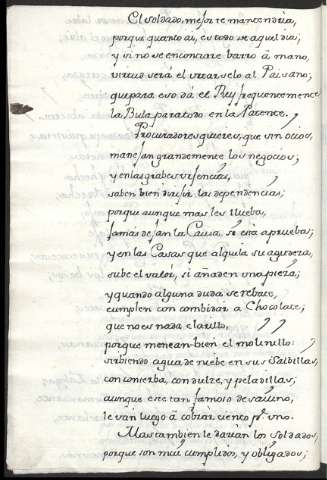 El soldado, mejor se mantendria,
porque quanto ai, es todo se aquel dia;
y si no se encontrare barro à mano,
virtud será el usarselo al Paisano;
que para eso dá el Rey frequentemente
la Bula para todo en la Patente.
Procuradores quieren, que sin ocios,
manejan grandemente los negocios;
y en las grabes urjencias,
saben bien las dependencias;
porque aunque mas les llueba,
jamás dejan la Causa, si está à prueba;
y en las Casas que alquila su agudeza,
sube el valor, si añaden una pieza;
y quando alguna duda se rebate,
cumplen con combidar a Chocolate;
que no es nada el asillo,
porque menean bien el molinillo:
sirbiendo agua de niebe en sus Salbillas,
con conserba, con dulze, y peladillas;
aunque este tan famoso desaiuno,
le ván luego à cobrar ciento pr. uno.
Mas tambien le darian los soldados,
porque son mui cumplidos, y obligados;